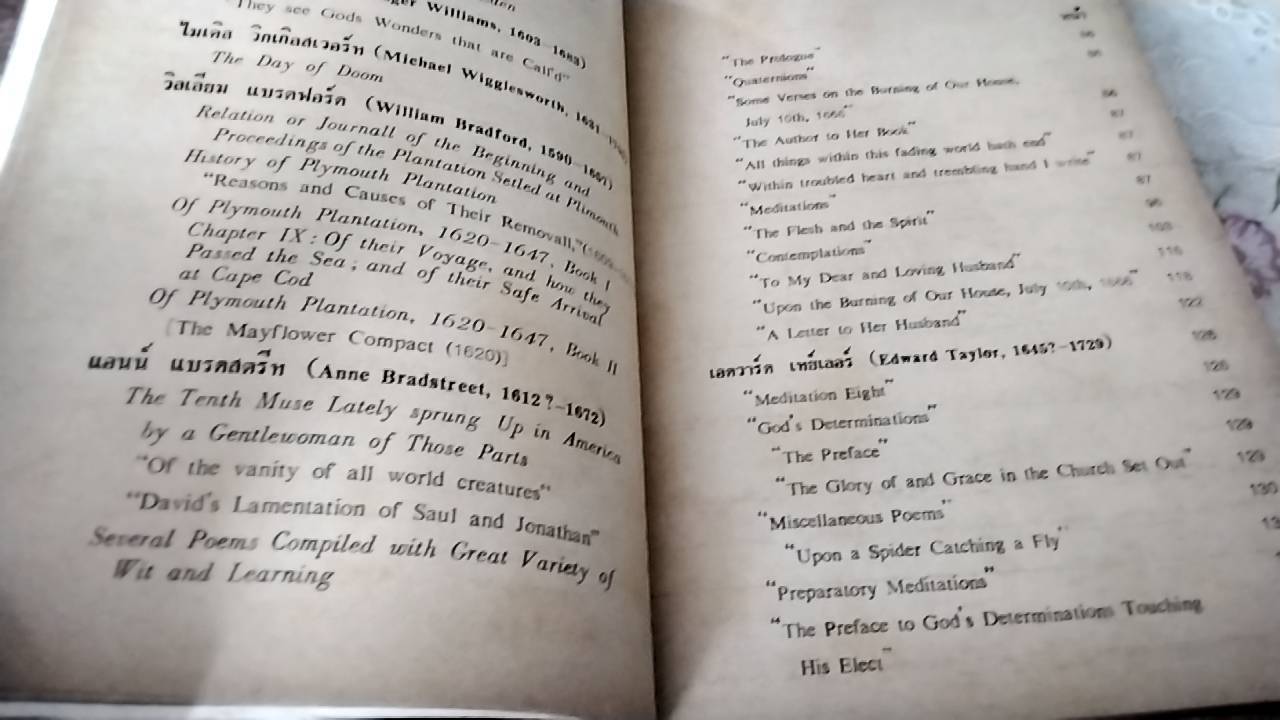 Williams, 1603-1683)
"They see Gods Wonders that are Call'd"
ไมเคิล วิกเกิลสเวอร์ท (Michael Wigglesworth, 1631-
The Day of Doom
วิลเลียม แบรดฟอร์ด (William Bradford, 1590-1657)
Relation or Journall of the Beginning and
Proceedings of the Plantation Setled at Plimouth
History of Plymouth Plantation
"Reasons and Causes of Their Removall,"
Of Plymouth Plantation, 1620-1647, Book I
Chapter IX : Of their Voyage, and how they
Passed the Sea ; and of their Safe Arrival
at Cape Cod
Of Plymouth Plantation, 1620-1647, Book II
[The Mayflower Compact (1620)]
แอนน์ แบรดสตรีท (Anne Bradstreet, 1612?-1672)
The Tenth Muse Lately sprung Up in America
by a Gentlewoman of Those Parts
"Of the vanity of all world creatures"
"David's Lamentation of Saul and Jonathan"
Several Poems Compiled with Great Variety of
Wit and Learning
หน้า
"The Prologue"
"Quaternions"
"Some Verses on the Burning of Our House,
July 10th, 1666"
"The Author to Her Book" 87
"All things within this fading world hath end" 87
"Within troubled heart and trembling hand I write" 87
"Meditations" 87
"The Flesh and the Spirit"
"Contemplations"
"To My Dear and Loving Husband" 116
"Upon the Burning of Our House, July 10th, 1666" 118
"A Letter to Her Husband" 122
เอดวาร์ด เทย์เลอร์ (Edward Taylor, 1645?-1729)
"Meditation Eight" 126
"God's Determinations" 129
"The Preface" 129
"The Glory of and Grace in the Church Set Out" 129
"Miscellaneous Poems" 130
"Upon a Spider Catching a Fly"
"Preparatory Meditations"
"The Preface to God's Determinations Touching
His Elect"